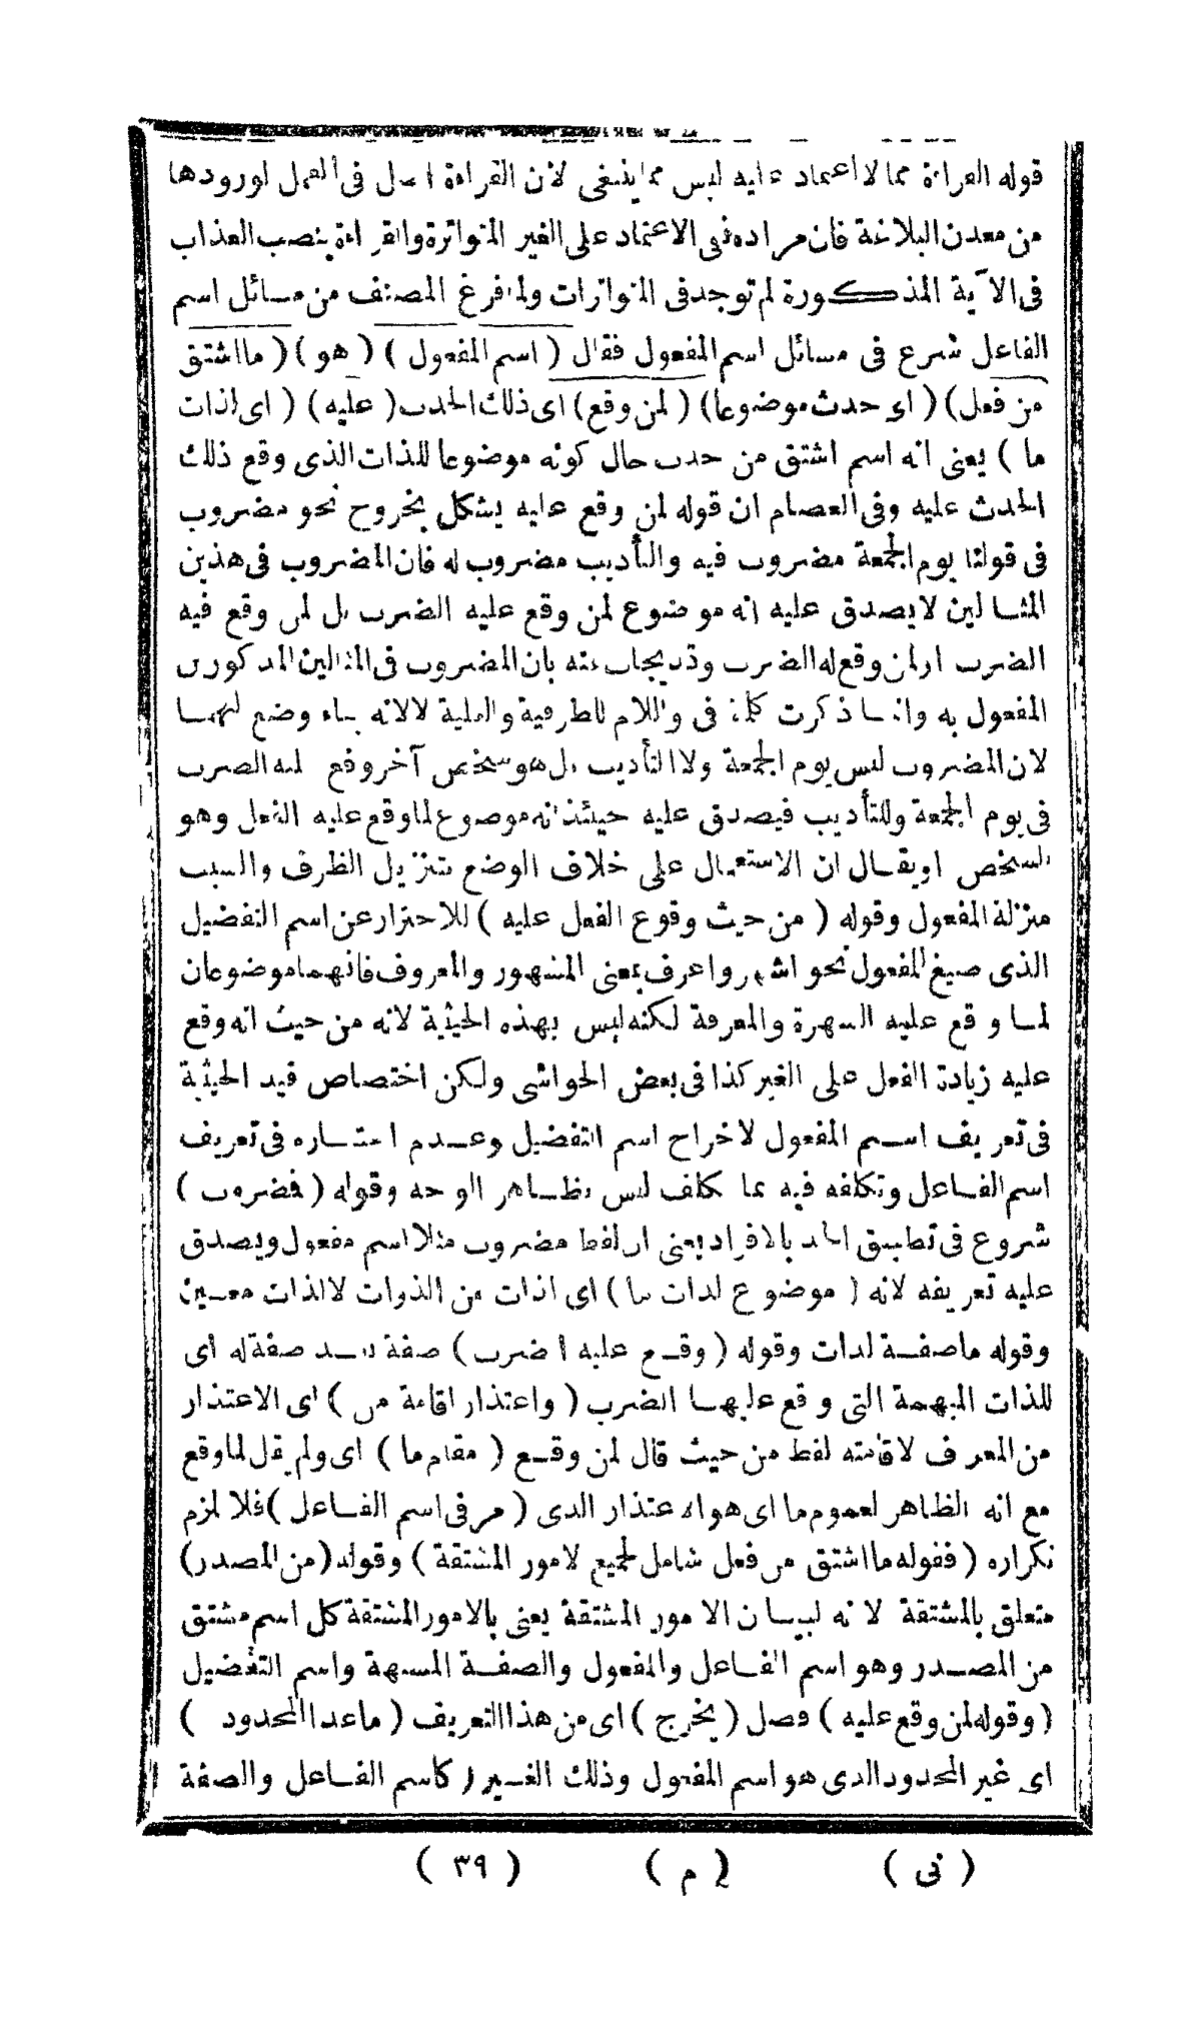 قوله القراءة مما لا اعتماد عليه ليس مما ينبغى لان القراءة اصل فى العمل لورودها
من معدن البلاغة فان مراده نفى الاعتماد على الغير المتواترة والقراءة بنصب العذاب
فى الآية المذكورة لم توجد فى المتواترات ولما فرغ المصنف من مسائل اسم
الفاعل شرع فى مسائل اسم المفعول فقال ( اسم المفعول ) ( هو ) ( ما اشتق
من فعل ) ( اى حدث موضوعا ) ( لمن وقع ) اى ذلك الحدث ( عليه ) ( اى لذات
ما ) يعنى انه اسم اشتق من حدث حال كونه موضوعا للذات الذى وقع ذلك
الحدث عليه وفى العصام ان قوله لمن وقع عليه يشكل بخروج نحو مضروب
فى قولنا يوم الجمعة مضروب فيه والتأديب مضروب له فان المضروب فى هذين
المثالين لا يصدق عليه انه موضوع لمن وقع عليه الضرب بل لمن وقع فيه
الضرب او لمن وقع له الضرب وقد يجاب عنه بان المضروب فى المثالين المذكورين
المفعول به وانما ذكرت كلمة فى واللام للظرفية والعلية لا لانه بناء وضع لهما
لان المضروب ليس يوم الجمعة ولا التأديب بل هو شخص آخر وقع عليه الضرب
فى يوم الجمعة وللتأديب فيصدق عليه حينئذ انه موضوع لما وقع عليه الفعل وهو
الشخص او يقال ان الاستعمال على خلاف الوضع بتنزيل الظرف والسبب
منزلة المفعول وقوله ( من حيث وقوع الفعل عليه ) للاحتراز عن اسم التفضيل
الذى صيغ للمفعول نحو اشهر واعرف بمعنى المشهور والمعروف فانهما موضوعان
لما وقع عليه الشهرة والمعرفة لكنه ليس بهذه الحيثية لانه من حيث انه وقع
عليه زيادة الفعل على الغير كذا فى بعض الحواشى ولكن اختصاص قيد الحيثية
فى تعريف اسم المفعول لاخراج اسم التفضيل وعدم اعتباره فى تعريف
اسم الفاعل وتكلفه فيه بما تكلف ليس بظاهر الوجه وقوله ( فمضروب )
شروع فى تطبيق الحد بالافراد يعنى ان لفظ مضروب مثلا اسم مفعول ويصدق
عليه تعريفه لانه ( موضوع لذات ما ) اى لذات من الذوات لا لذات معين
وقوله ما صفة لذات وقوله ( وقع عليه الضرب ) صفة بعد صفة له اى
للذات المبهمة التى وقع عليها الضرب ( واعتذار اقامة من ) اى الاعتذار
من المعرف لاقامته لفظ من حيث قال لمن وقع ( مقام ما ) اى ولم يقل لما وقع
مع انه الظاهر لعموم ما اى هو الاعتذار الذى ( مر فى اسم الفاعل ) فلا لزم
تكراره ( فقوله ما اشتق من فعل شامل لجميع الامور المشتقة ) وقوله ( من المصدر )
متعلق بالمشتقة لانه لبيان الامور المشتقة يعنى بالامور المشتقة كل اسم مشتق
من المصدر وهو اسم الفاعل والمفعول والصفة المشبهة واسم التفضيل
( وقوله لمن وقع عليه ) فصل ( يخرج ) اى من هذا التعريف ( ما عدا المحدود )
اى غير المحدود الذى هو اسم المفعول وذلك الغير ( كاسم الفاعل والصفة
( نى ) ( م ) ( ٣٩ )